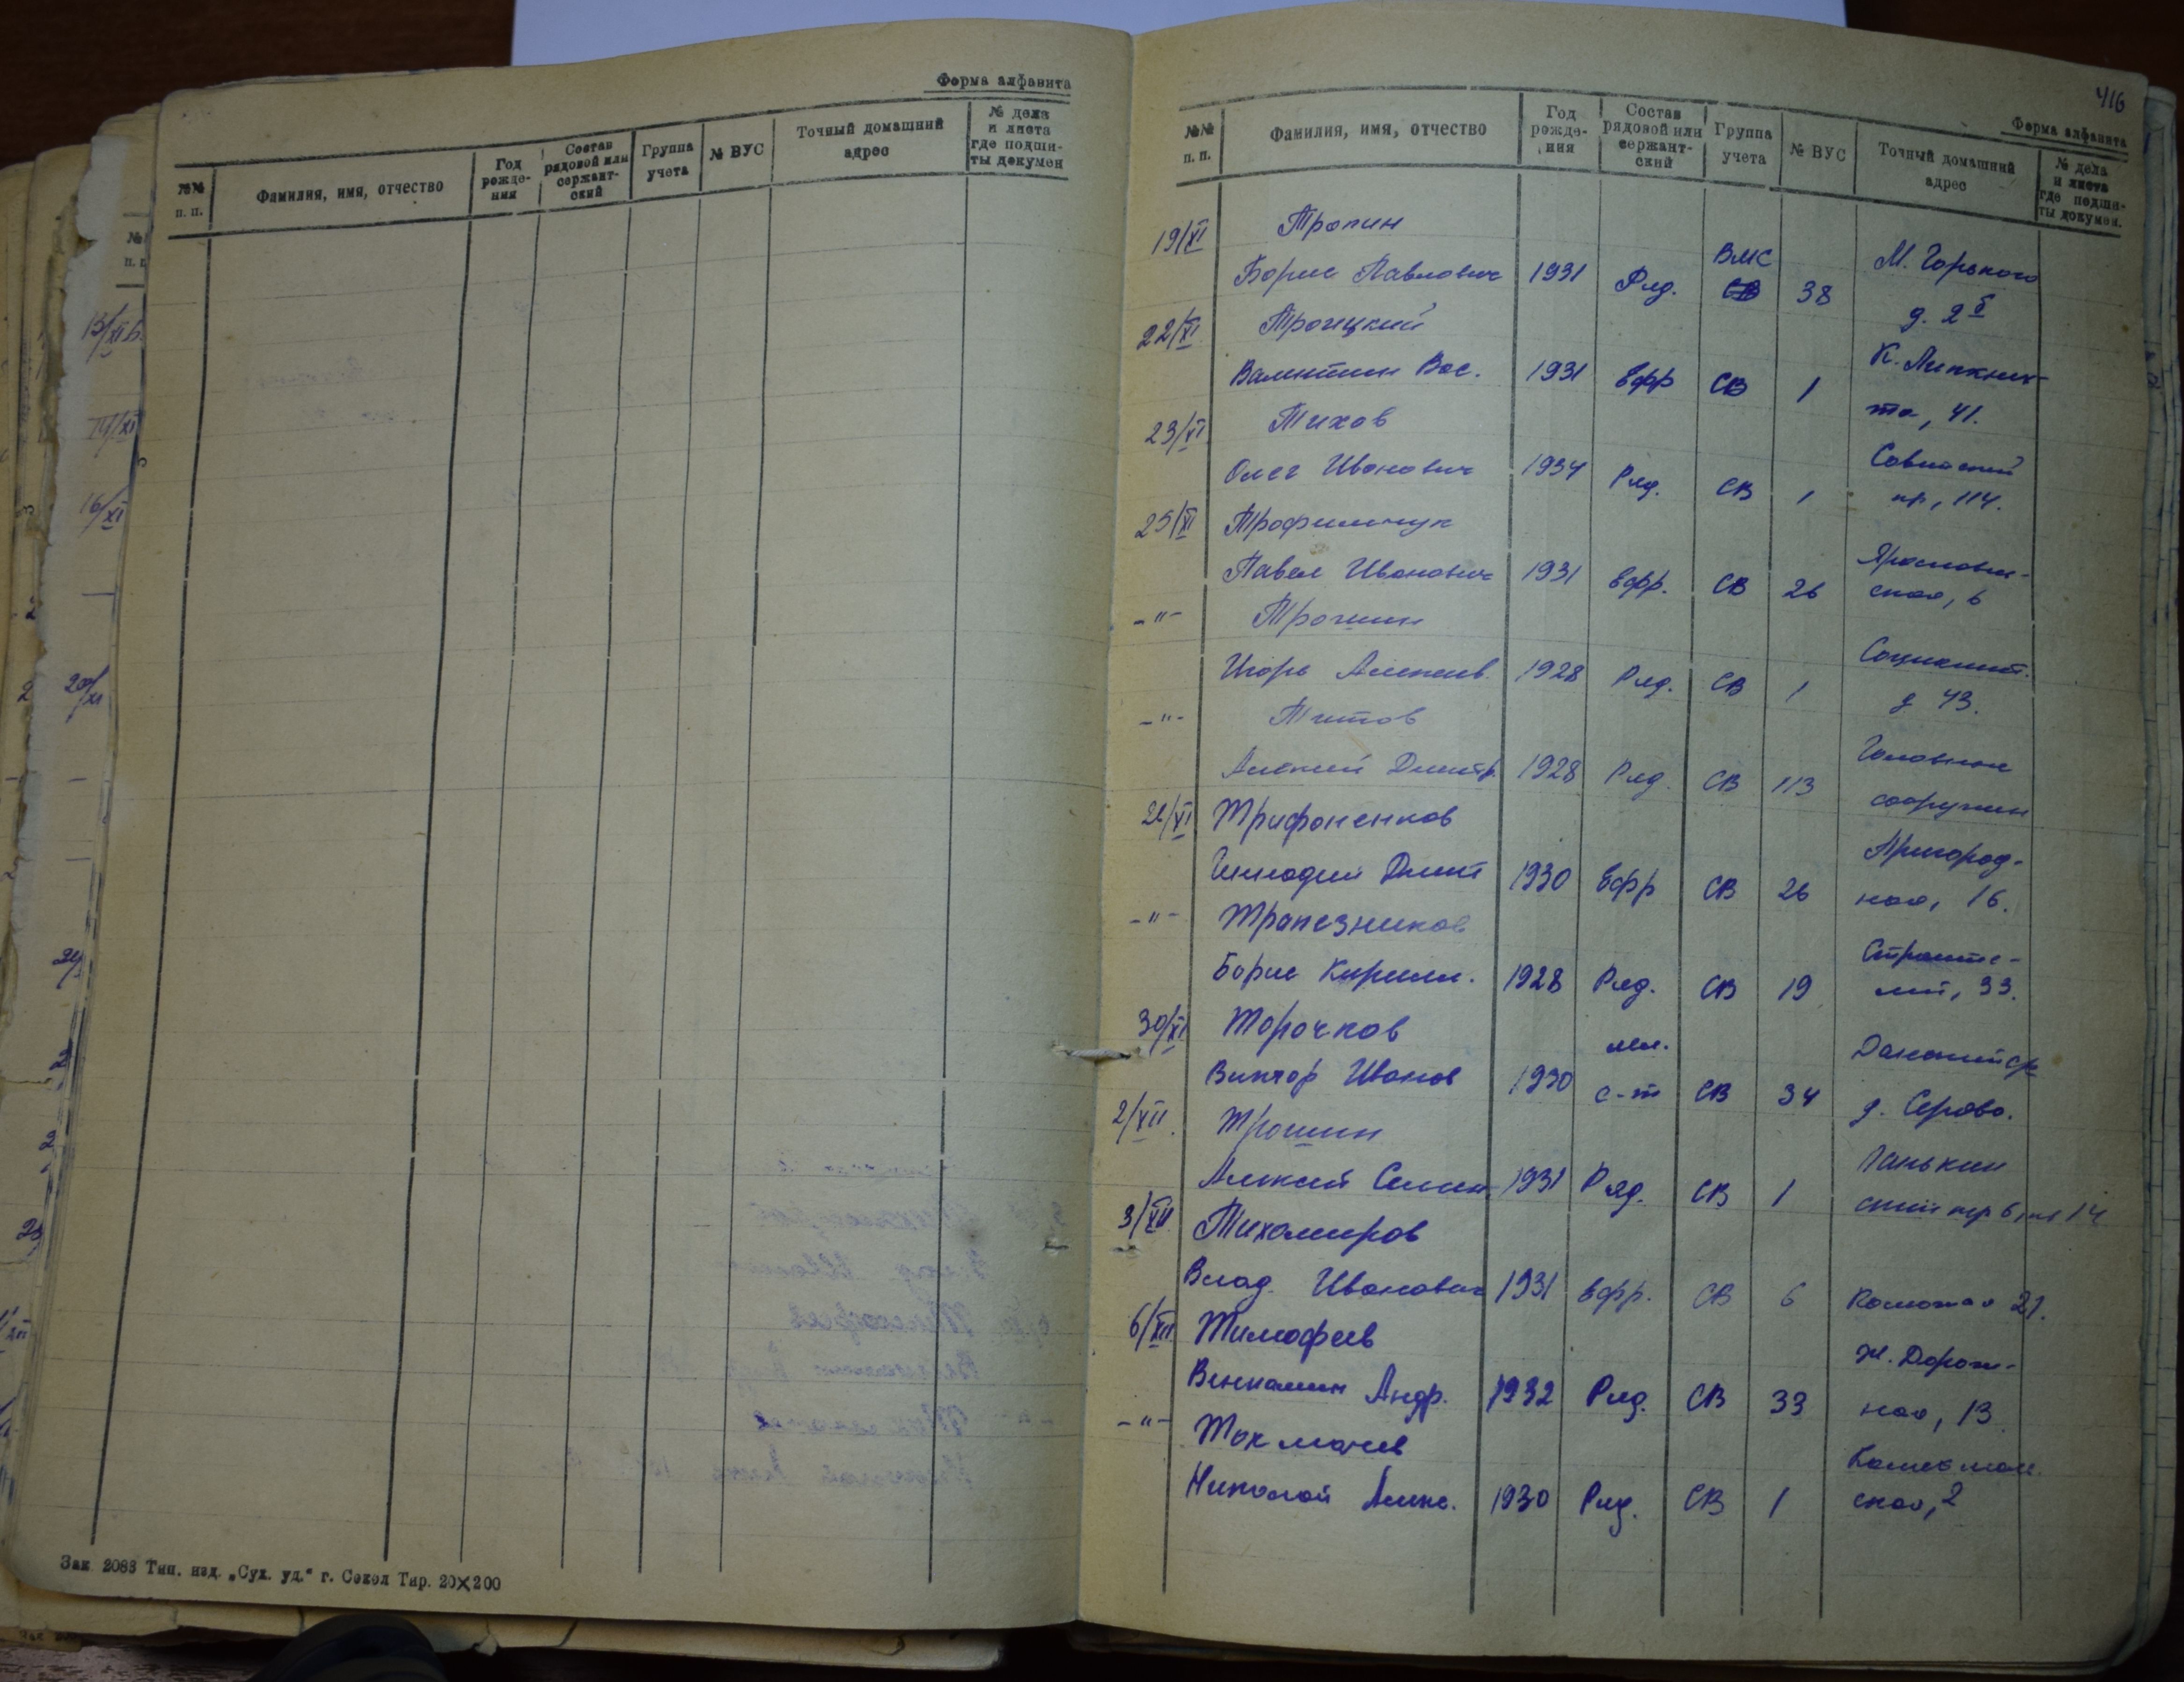 Форма алфавита
№№ п. п. Фамилия, имя, отчество Год рожде- ния Состав рядовой или сержант- ский Группа учета № ВУС Точный домашний адрес № дела и листа где подши- ты докумен
Зак 2083 Тип. изд. „Сух. уд.“ г. Сокол Тир. 20×200
416
Форма алфавита
№№ п. п. Фамилия, имя, отчество Год рожде- ния Состав рядовой или сержант- ский Группа учета № ВУС Точный домашний адрес № дела и листа где подши- ты докумен.
19/XI Тропин
ВМС М. Горького
Борис Павлович 1931 Ряд. СВ 38 д. 2б
22/XI Троицкий
К. Либкнех-
Валентин Вас. 1931 Ефр СВ 1 та, 41.
23/XI Тихов
Советский
Олег Иванович 1934 Ряд. СВ 1 пр, 114.
25/XI Трофимчук
Ярославс-
Павел Иванович 1931 Ефр. СВ 26 ская, 6
-"- Трошин
Социалист.
Игорь Алексеев. 1928 Ряд. СВ 1 д 43.
-"- Титов
Головные
Алексей Дмитр. 1928 Ряд. СВ 113 сооружен
26/XI Трифоненков
Пригород-
Геннадий Дмит 1930 Ефр СВ 26 ная, 16.
-"- Трапезников
Строите-
Борис Кирилл. 1928 Ряд. СВ 19 лей, 33.
30/XI Торочков
мл.
Виктор Иванов 1930 с-т СВ 34 д. Серово.
2/XII. Трошин
Алексей Семен 1931 Ряд. СВ 1 ский пер 6, кв 14
3/XII. Тихомиров
Влад. Иванович 1931 Ефр. СВ 6 21.
6/XII Тимофеев
Ж. Дорож-
Вениамин Андр. 1932 Ряд. СВ 33 ная, 13
-"- Токмачев
Николай Алекс. 1930 Ряд. СВ 1 ская, 2